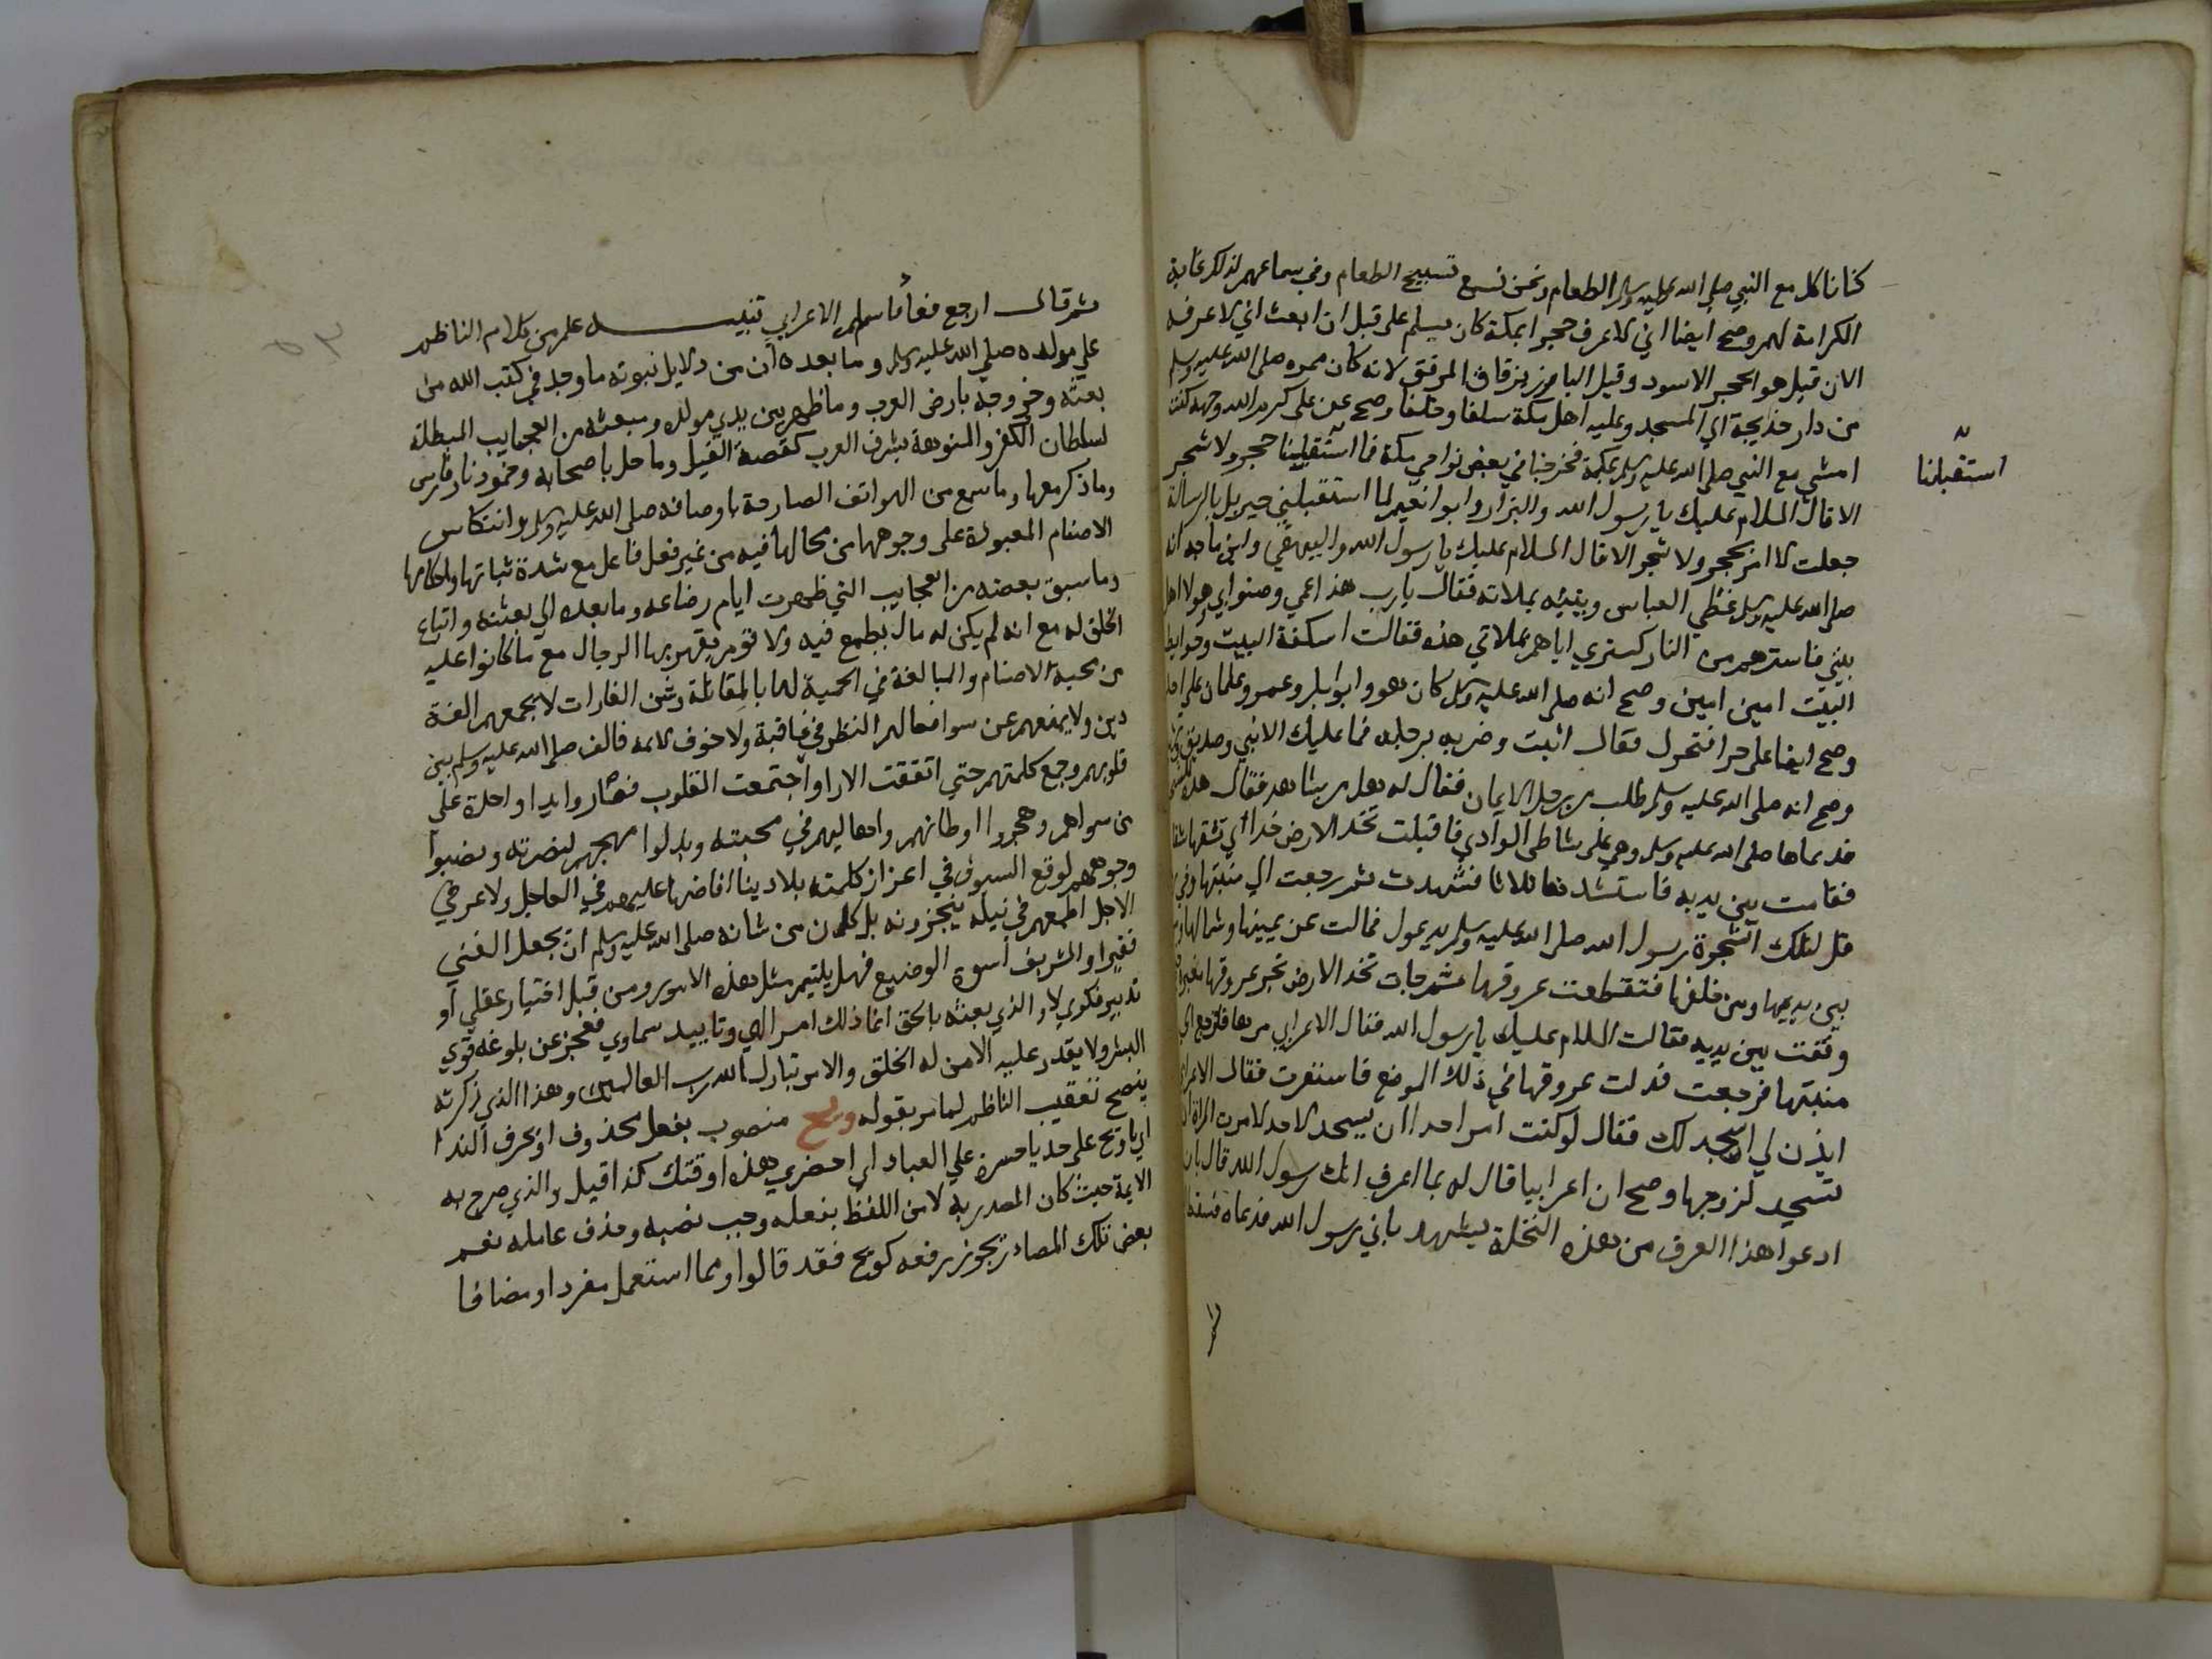 كنا ناكل مع النبي صلى الله عليه وسلم الطعام ونحن نسمع تسبيح الطعام وفي سماعهم لذلك غاية
الكرامة لهم وصح ايضا اني لاعرف حجرا بمكة كان يسلم على قبل ان ابعث اني لاعرفه
الان قيل هو الحجر الاسود وقيل البارز بزقاق المرفق لانه كان ممره صلى الله عليه وسلم
من دار خديجة الي المسجد وعليه اهل مكة سلفا وخلفا وصح عن على كرم الله وجهه كنت
امشى مع النبي صلى الله عليه وسلم بمكة فخرجنا في بعض نواحي مكة فما استقبلينا حجر ولا شجر
استقبلنا
الا قال السلام عليك يا رسول الله والبزار وابو انعيم لما استقبلني جبريل بالرسالة
جعلت لا امر بحجر ولا شجر الا قال السلام عليك يا رسول الله والبيهقي وابن ماجه انه
صلى الله عليه وسلم غطي العباس وبنيه بملاته فقال يارب هذا عمي وصنو ابي وهولا اهل
بيتي فاسترهم من النار كستري اياهم بملاتي هذه فقالت اسكفة البيت وحوايط
البيت امين امين وصح انه صلى الله عليه وسلم كان هو وابوبكر وعمر وعثمان على احد
وصح ايضا على حرا فتحرك فقال اثبت وضربه برجله فما عليك الا نبي وصديق
وصح انه صلى الله عليه وسلم طلب من رجل الايمان فقال له هل من شاهد فقال هذه
فدعاها صلى الله عليه وسلم وهي على شاطى الوادي فاقبلت تخد الارض خدا اي تشقها شقا
فقامت بين يديه فاستشهدها ثلاثا فشهدت ثم رجعت الي منبتها وفي
قل لتلك الشجرة رسول الله صلى الله عليه وسلم يدعوك فمالت عن يمينها وشمالها
بين يديها ومن خلفها فتقطعت عروقها ثم جات تخد الارض تجر عروقها مغبرة
وقفت بين يديه فقالت السلام عليك يا رسول الله فقال الاعرابي مرها فلترجع الي
منبتها فرجعت فدلت عروقها في ذلك الموضع فاستقرت فقال الاعرابي
ايذن لي اسجد لك فقال لو كنت امر احدا ان يسجد لاحد لامرت المراة ان
تسجد لزوجها وصح ان اعرابيا قال له بما اعرف انك رسول الله قال بان
ادعوا هذا العرق من هذه النخلة يشهد باني رسول الله فدعاه
ثم قال ارجع فعاد فاسلم الاعرابي تنبيه علم من كلام الناظم
علي مولده صلى الله عليه وسلم وما بعده ان من دلايل نبوته ما وجد في كتب الله من
بعثه وخروجه بارض العرب وما ظهر بين يدي مولده ومبعثه من العجايب المبطلة
لسلطان الكفر والمنوهة بشرف العرب كقصة الفيل وما حل باصحابه وخمود نار فارس
وما ذكر معها وما سمع من الهواتف الصارحة باوصافه صلى الله عليه وسلم وانتكاس
الاصنام المعبودة على وجوهها من محالها فيه من غير فعل فاعل مع شدة ثباتها واحكامها
وما سبق بعضه من العجايب التي ظهرت ايام رضاعه وما بعده الي بعثته واتباع
الخلق له مع انه لم يكن له مال يطمع فيه ولا قوم يقهر بها الرجال مع ما كانوا عليه
من محبة الاصنام والمبالغة في الحمية لها بالمقاتلة وشن الغارات لا يجمعهم الفة
دين ولا يمنعهم عن سو افعالهم النظر في عاقبة ولا خوف لايمه فالف صلى الله عليه وسلم بين
قلوبهم وجمع كلمتهم حتي اتفقت الارا واجتمعت القلوب فصاروا يدا واحدة على
من سواهم وهجروا اوطانهم واهاليهم في محبته وبذلوا مهجهم لنصرته ونصبوا
وجوههم لوقع السيوف في اعزاز كلمته بلا دينا افاضها عليهم في العاجل ولا عرض في
الاجل اطمعهم في نيله ينجزونه بل كان من شانه صلى الله عليه وسلم ان يجعل الغني
فقيرا والشريف اسوة الوضيع فهل يلتيم مثل هذه الامور من قبل اختيار عقلي او
تدبير فكري لا والذي بعثه بالحق انما ذلك امر الهي وتاييد سماوي يعجز عن بلوغه قوي
البشر ولا يقدر عليه الا من له الخلق والامر تبارك الله رب العالمين وهذا الذي ذكرته
يتضح تعقيب الناظم لما مر بقوله ويح منصوب بفعل محذوف او بحرف الندا
اي يا ويح على حد يا حسرة علي العباد اي احضري هذه اوقتك كذا قيل والذي صرح به
الايمة حيث كان المصدر به لا من اللفظ بفعله وجب نصبه وحذف عامله نعم
بعض تلك المصادر يجوز رفعه كويح فقد قالوا ومما استعمل مفردا ومضافا